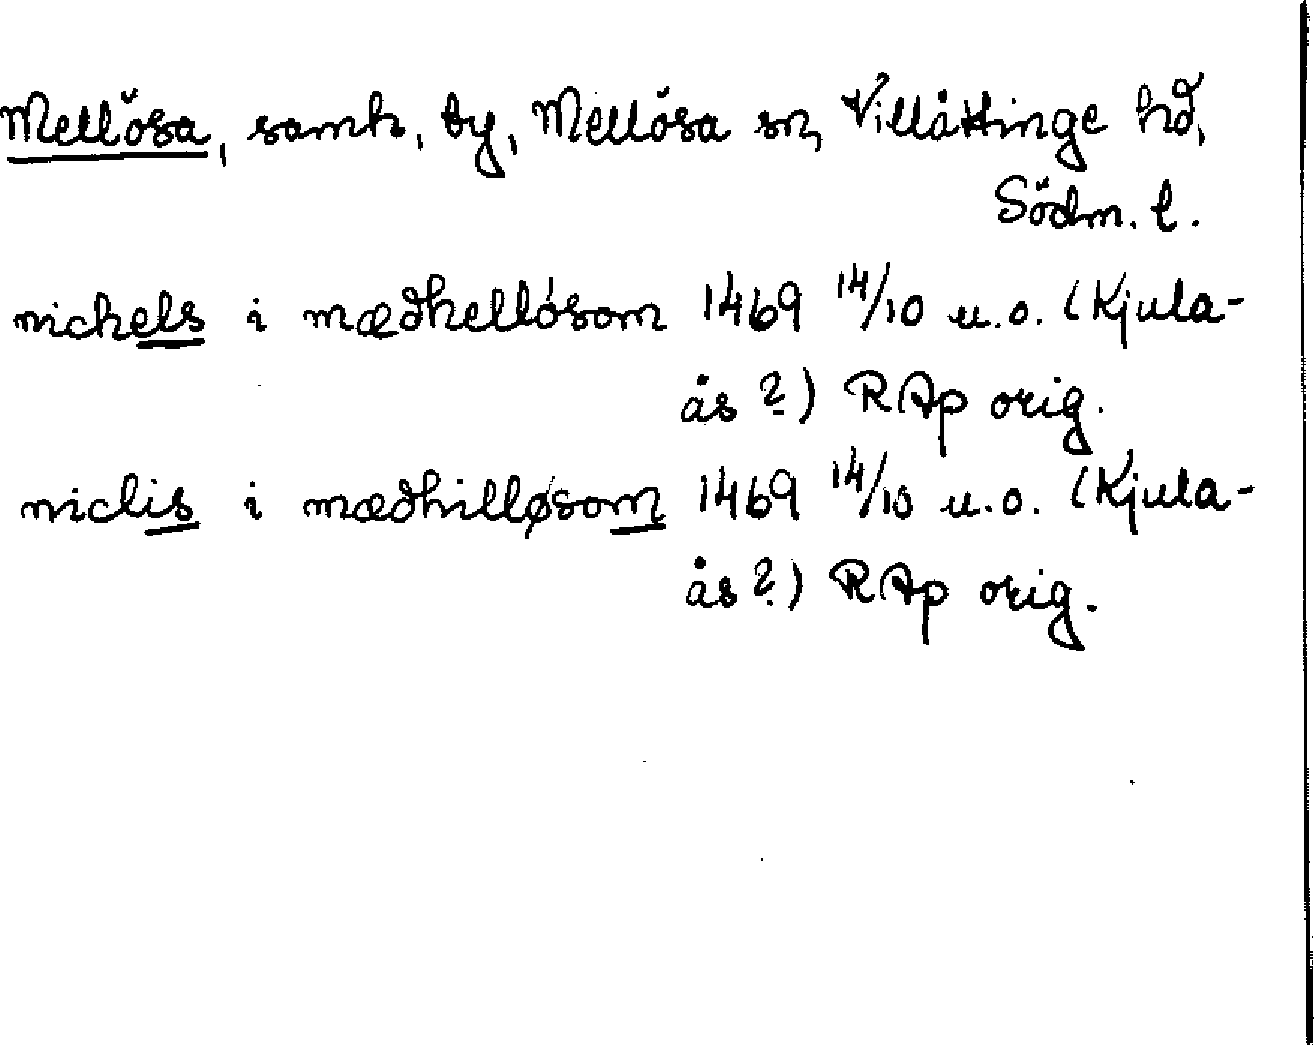 Mellösa, samh, by, Mellösa sn, Villåttinge hd,
Södm. l.
nichels i mædhellósom 1469 14/10 u.o. (Kjula-
ås?) RAp orig.
niclis i mædhilløsom 1469 14/10 u.o. (Kjula-
ås?) RAp orig.